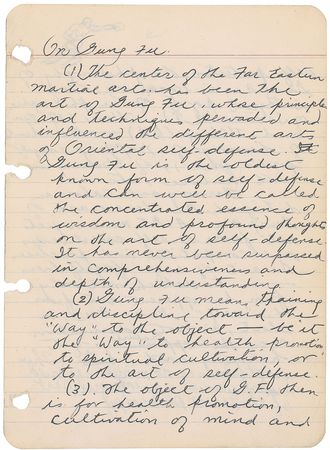 On Gung Fu.
(1) The center of the Far Eastern
martial arts has been the
art of Gung Fu, whose principle
and techniques pervaded and
influenced the different arts
of Oriental self-defense.
Gung Fu is the oldest
known form of self-defense
and can well be called
the concentrated essence of
wisdom and profound thoughts
on the art of self-defense
It has never been surpassed
in comprehensiveness and
depth of understanding
(2) Gung Fu means training
and discipline toward the
"Way" to the object — be it
the "Way" to health promotion
to spiritual cultivation, or
to the art of self-defense.
(3). The object of G.F. then
is for health promotion,
cultivation of mind and